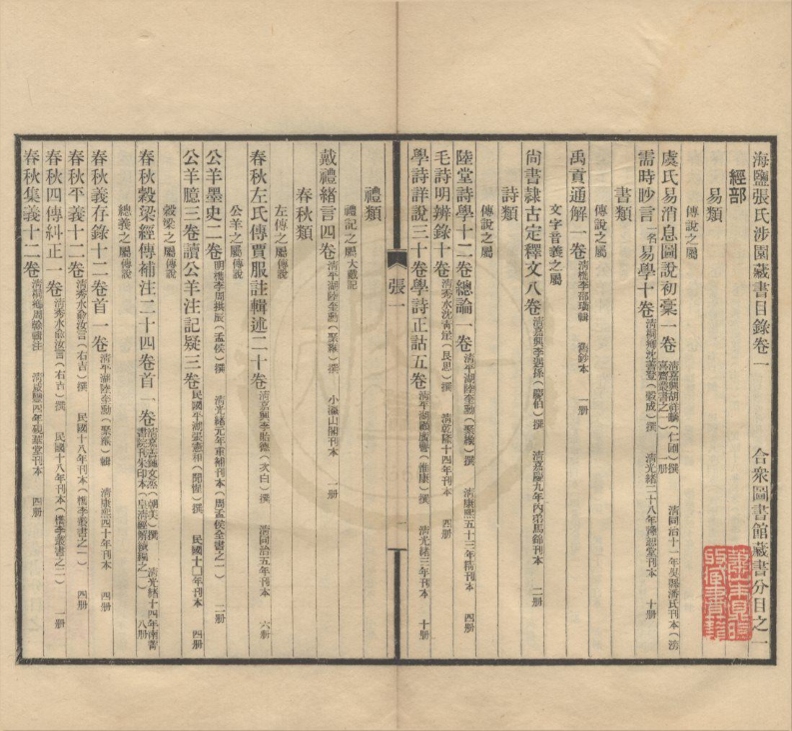 海鹽張氏涉園藏書目錄卷一　合衆圖書館藏書分目之一
經部
易類
傳說之屬
虞氏易消息圖說初稾一卷 清嘉興胡祥麟（仁圃）撰　清同治十一年吳縣潘氏刊本（滂喜齋叢書之一）　一册
需時眇言一名易學十卷 清桐鄉沈善登（穀成）撰　清光緒二十八年豫恕堂刊本　十册
書類
傳說之屬
禹貢通解一卷 清檇李邵璜輯　舊鈔本　一册
文字音義之屬
尙書隸古定釋文八卷 清嘉興李遇孫（慶伯）撰　清嘉慶九年內弟馬錦刊本　二册
詩類
傳說之屬
陸堂詩學十二卷總論一卷 清平湖陸奎勳（聚緱）撰　清康熙五十三年精刊本　四册
毛詩明辨錄十卷 清秀水沈青崖（艮思）撰　清乾隆十四年刊本　四册
學詩詳說三十卷學詩正詁五卷 清平湖顧廣譽（惟康）撰　清光緒三年刊本　十册
張一
禮類
禮記之屬大戴記
戴禮緒言四卷 清平湖陸奎勳（聚緱）撰　小瀛山閣刊本　一册
春秋類
左傳之屬傳說
春秋左氏傳賈服註輯述二十卷 清嘉興李貽德（次白）撰　清同治五年刊本　六册
公羊之屬傳說
公羊墨史二卷 明檇李周拱辰（孟侯）撰　清光緒元年重補刊本（周孟侯全書之一）　二册
公羊臆三卷讀公羊注記疑三卷 民國平湖張憲和（聞惺）撰　民國十□年刊本　四册
穀梁之屬傳說
春秋穀梁經傳補注二十四卷首一卷 清嘉善鍾文烝（朝美）撰　清光緒十四年南菁書院刊朱印本（皇清經解續編之一）　八册
總義之屬傳說
春秋義存錄十二卷首一卷 清平湖陸奎勳（聚緱）輯　清康熙四十年刊本　四册
春秋平義十二卷 清秀水俞汝言（右吉）撰　民國十八年刊本（檇李叢書之一）　四册
春秋四傳糾正一卷 清秀水俞汝言（右吉）撰　民國十八年刊本（檇李叢書之一）　一册
春秋集義十二卷 清桐鄉周 輯注　清咸豐四年硯華堂刊本　四册